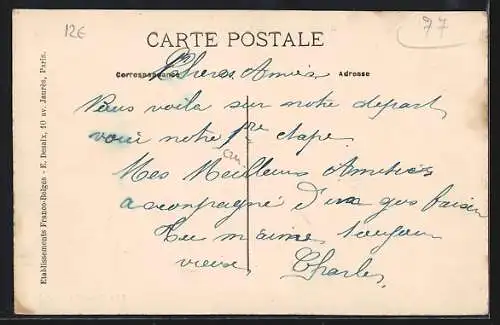 12€
77
CARTE POSTALE
Correspondance
Adresse
Chers Amies
Nous voila sur notre depart
voici notre 1re etape.
Mes Meilleurs Amities
acconpagné d'un gros baiser
m'aime toujour
Charles
Etablissements Franco-Belges - E. Desaix, 40 av. Jaurès, Paris.